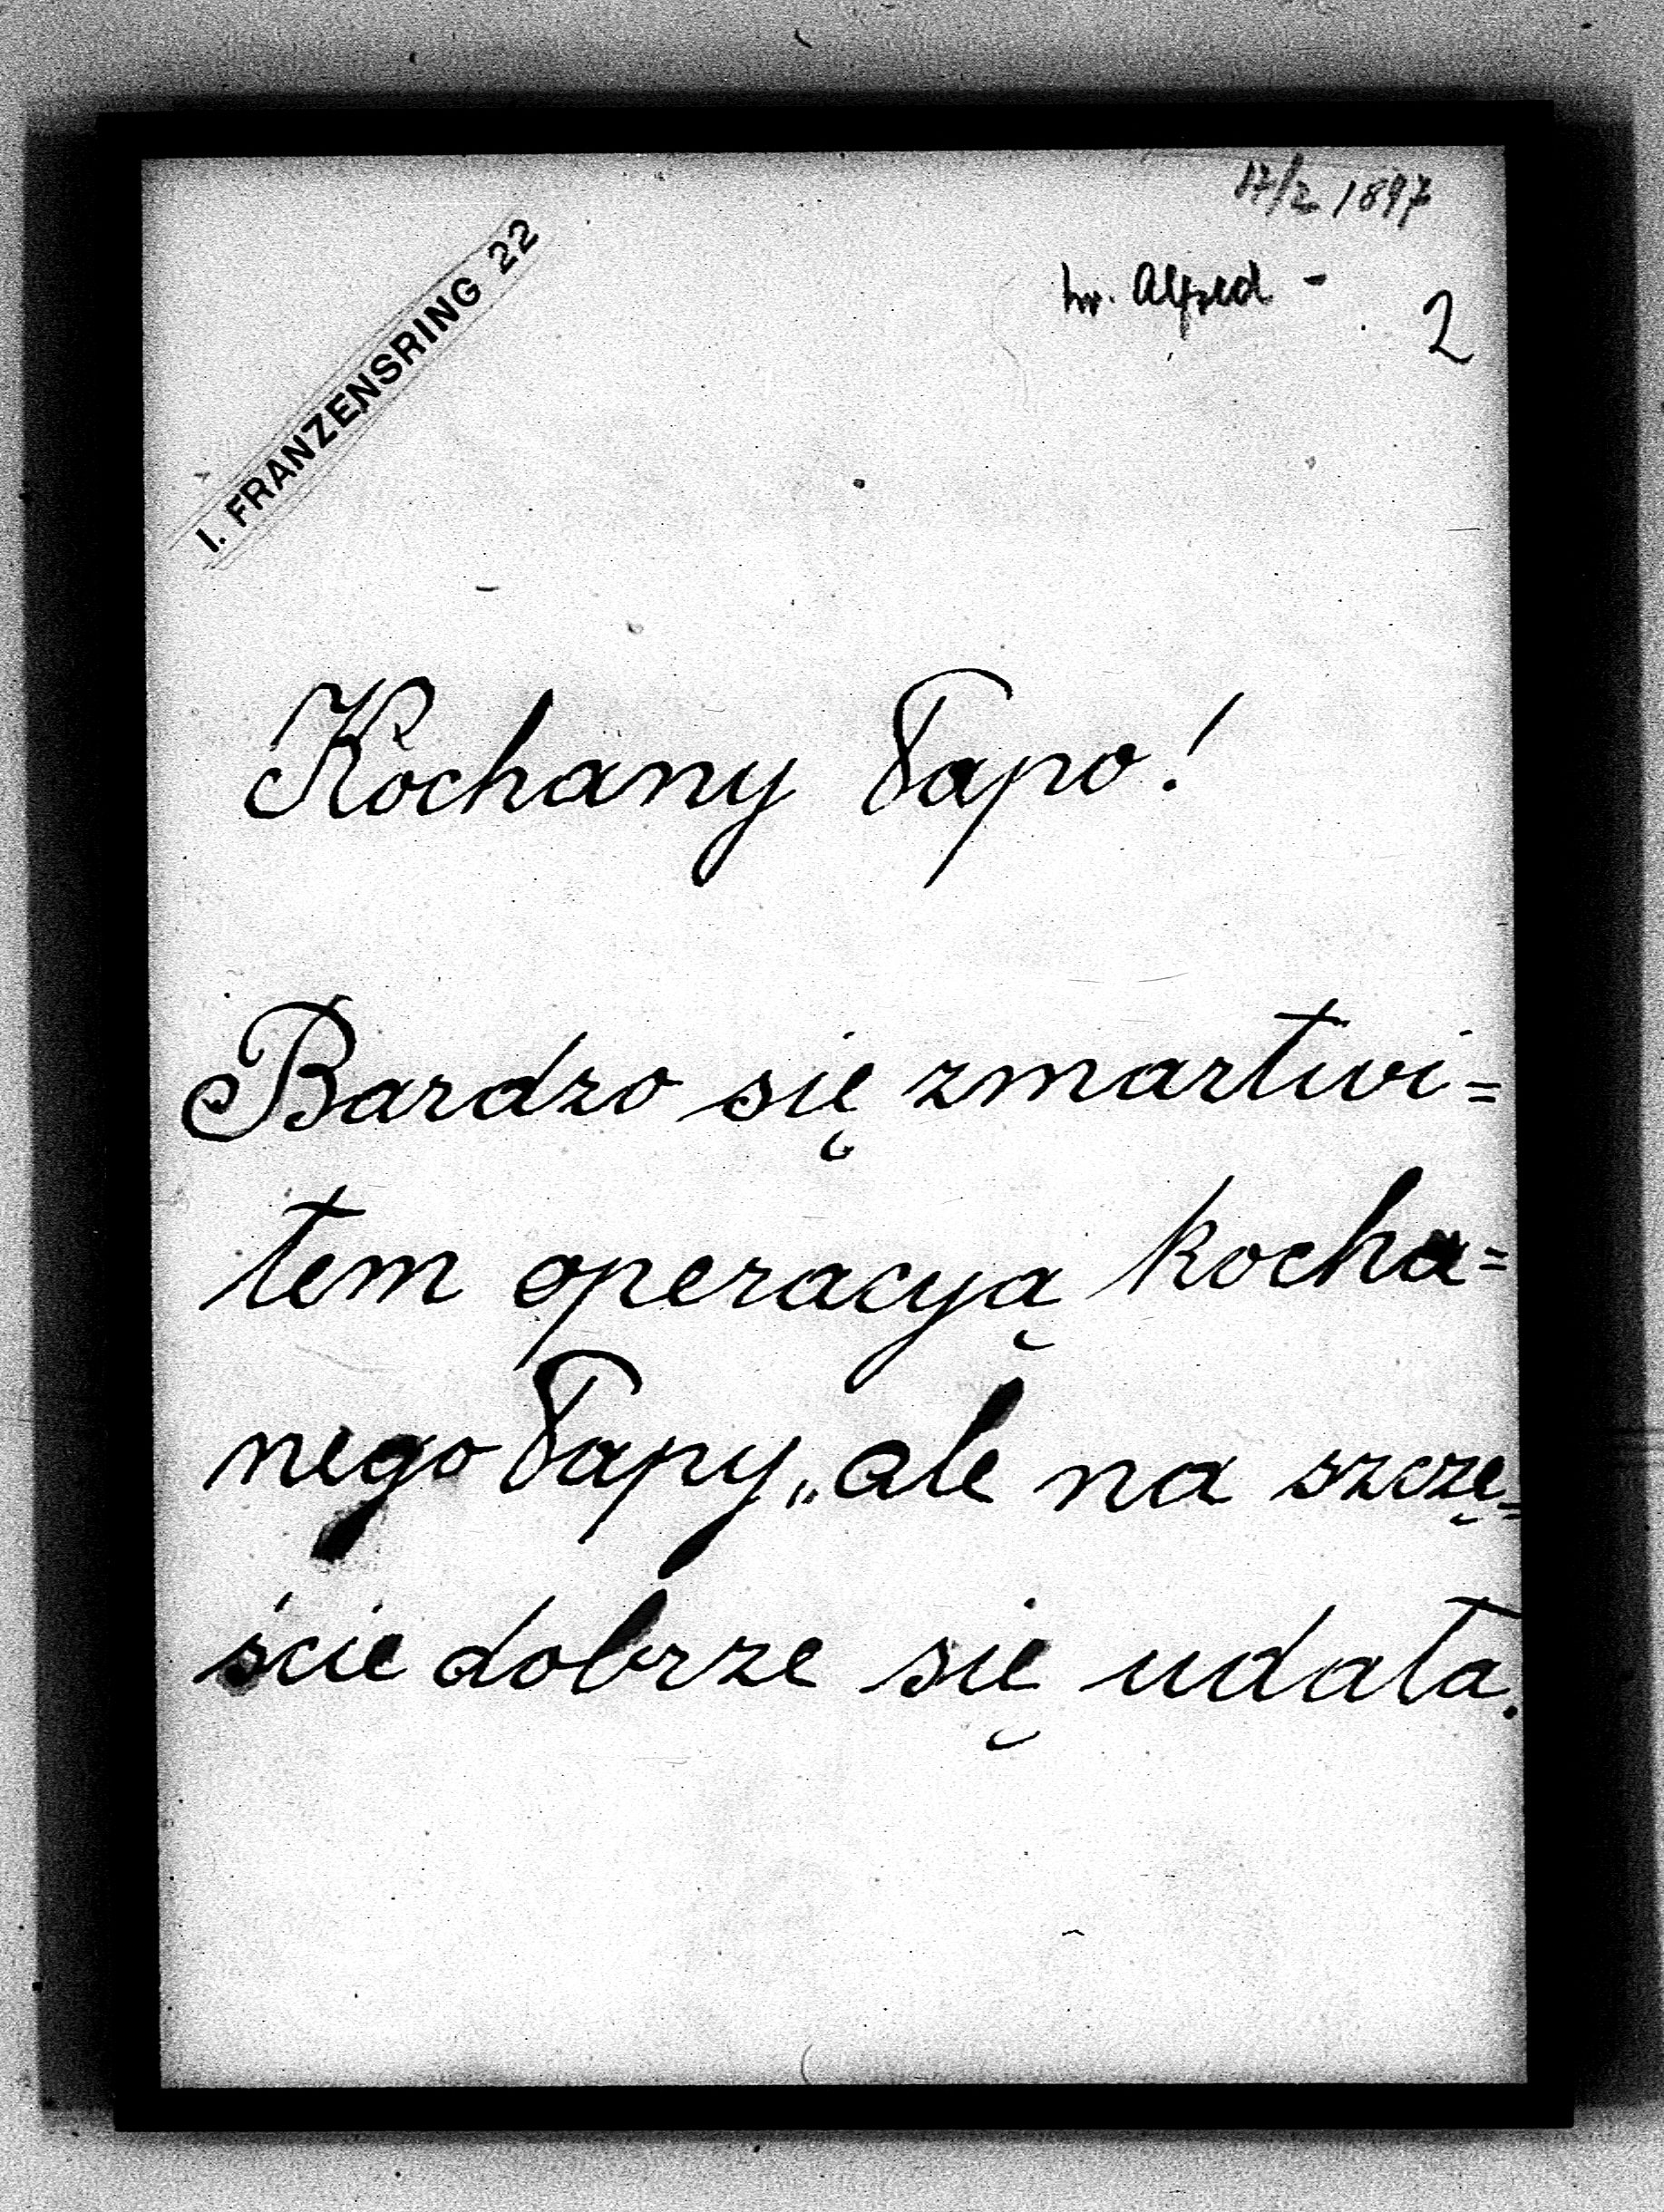 17/2 1897
hr. Alfred -
2
I. FRANZENSRING 22
Kochany Papo!
Bardzo się zmartwi=
łem operacyą kocha=
nego Papy, ale na szczę=
ście dobrze się udała.